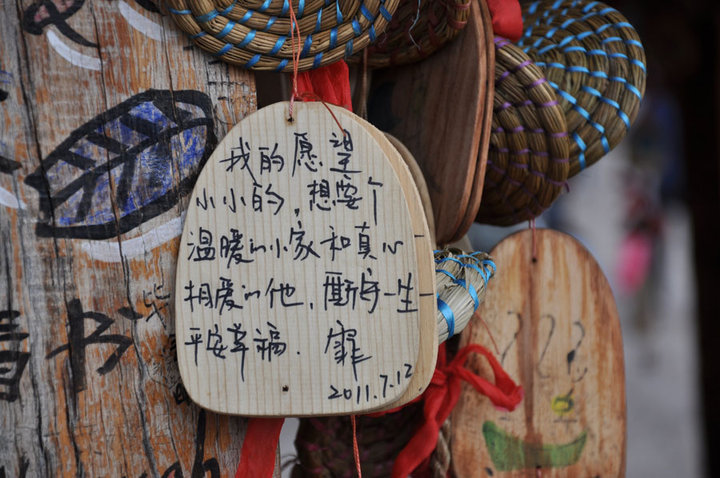 我的愿望
小小的，想要个
温暖的小家和真心
相爱的他，厮守一生
平安幸福.
2011.7.12
书